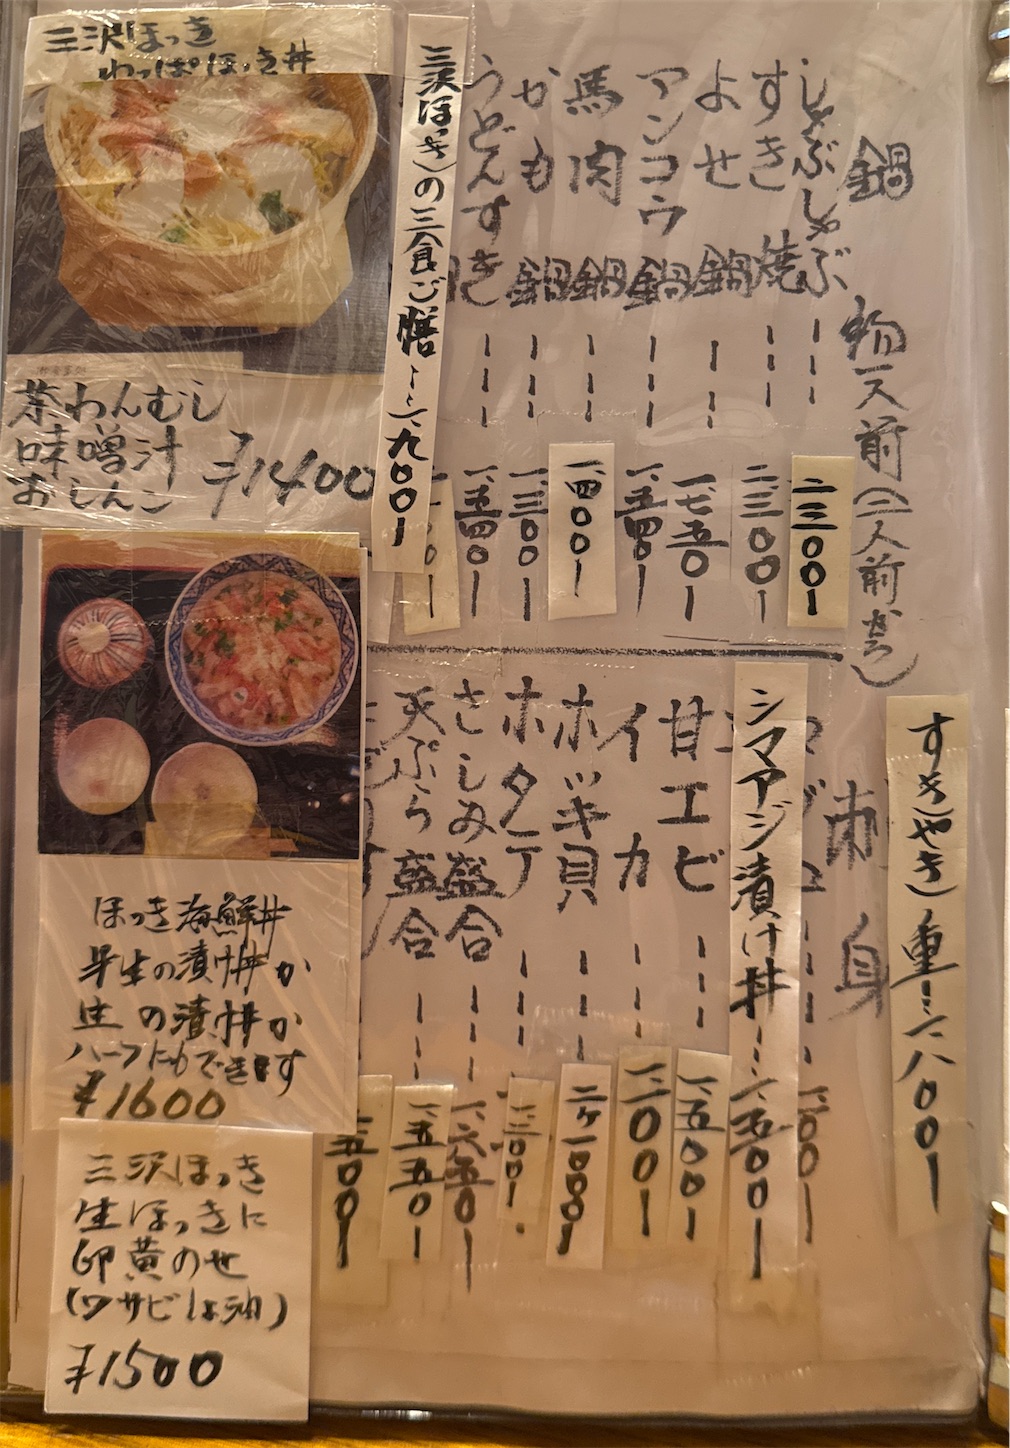 鍋物一人前(二人前から)
しゃぶしゃぶ---二三〇〇-
すき焼---二、三〇〇-
よせ鍋---一、七五〇-
アンコウ鍋---一、五四〇-
馬肉鍋---一、四〇〇-
かも鍋---一、三〇〇-
うどんすき---一、五四〇-
三沢ほっきの三食ご膳---一、九〇〇-
すきやき重---一、八〇〇-
刺身
シマアジ漬け丼---一、五〇〇-
甘エビ---一、五〇〇-
イカ---一、一〇〇-
ホッキ貝---二ケ一、〇〇〇-
ホタテ---一、三〇〇-
さしみ盛合---一、六五〇-
天ぷら盛合---一、五五〇-
三沢ほっき
わっぱほっき丼
茶わんむし
味噌汁
おしんこ ¥1400
ほっき海鮮丼
半生の漬け丼か
生の漬け丼か
ハーフにもできます
¥1600
三沢ほっき
生ほっきに
卵黄のせ
(ワサビしょう油)
¥1500